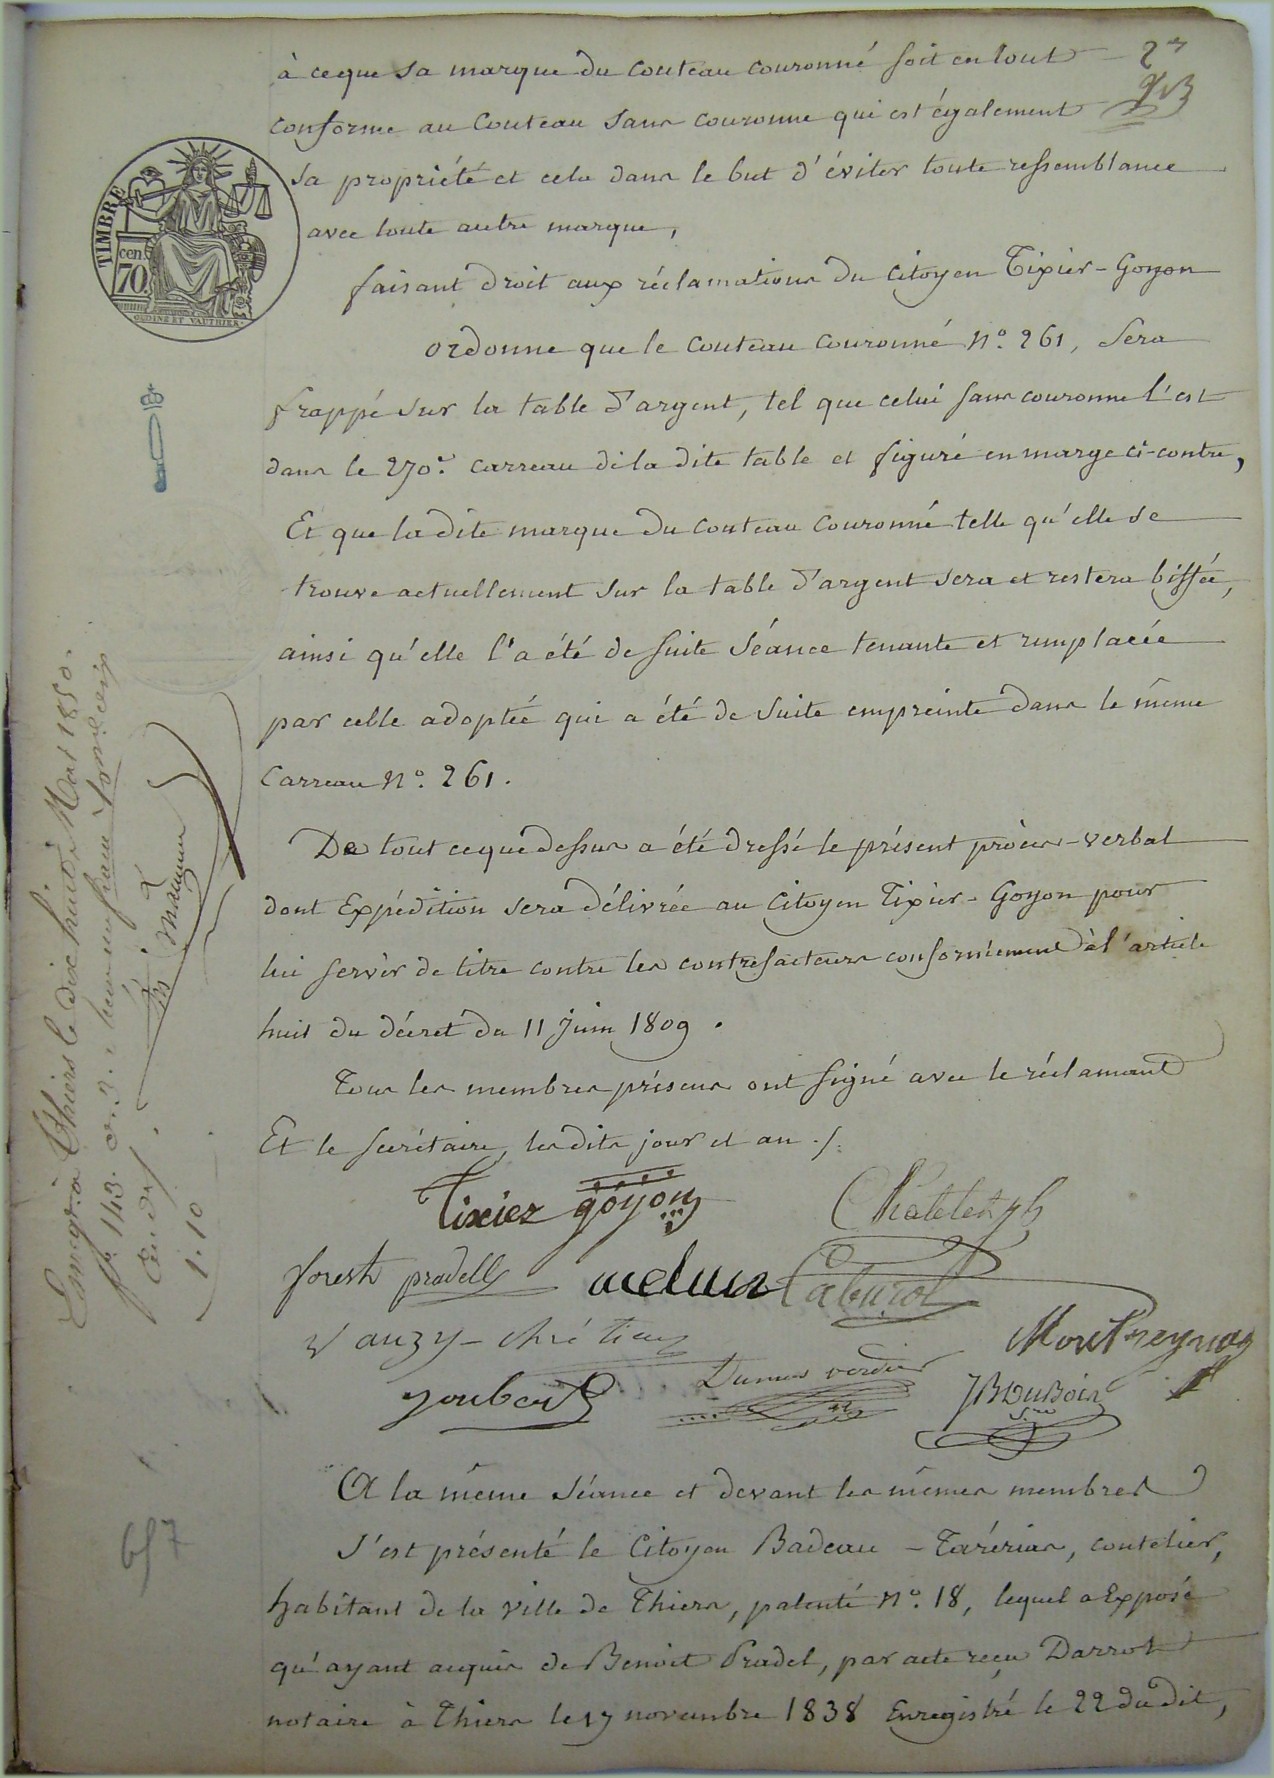 à ceque sa marque du couteau couronné soit en tout
conforme au couteau sans couronne qui est également
sa propriété et cela dans le but d'éviter toute ressemblance
avec toute autre marque,
TIMBRE
cen.
70
OUDINE ET VAUTHIER
faisant droit aux réclamations du citoyen Tixier-Goyon
ordonne que le couteau couronné N°. 261, sera
frappé sur la table d'argent, tel que celui sans couronne l'est
dans le 270e. carreau de la dite table et figuré en marge ci-contre,
Et que la dite marque du couteau couronné telle qu'elle se
trouve actuellement sur la table d'argent sera et restera biffée,
ainsi qu'elle l'a été de suite séance tenante et remplacée
par celle adoptée qui a été de suite empreinte dans le même
Carreau N°. 261.
De tout ceque dessus a été dressé le présent procès-verbal
dont Expédition sera délivrée au citoyen Tixier-Goyon pour
lui servir de titre contre les contrefacteurs conformément à l'article
huit du décret du 11 Juin 1809.
Tous les membres présens ont signé avec le réclamant
Et le secrétaire, les dits jour et an ./.
Tixier goyon
Chatelet
forest pradel
Cabirol
Vauzy-Chrétien
Joubert
Dumas verdier
JB Dubois
A la même séance et devant les mêmes membres
S'est présenté le Citoyen Badeau-Tarérias, coutelier,
habitant de la ville de Thiers, patenté N°. 18, lequel a Exposé
qu'ayant acquis de Benoit Pradel, par acte reçu Darrot
notaire à Thiers le 17 novembre 1838 Enregistré le 22 du dit,
à Thiers le dix huit Mai 1850.
1.10
657